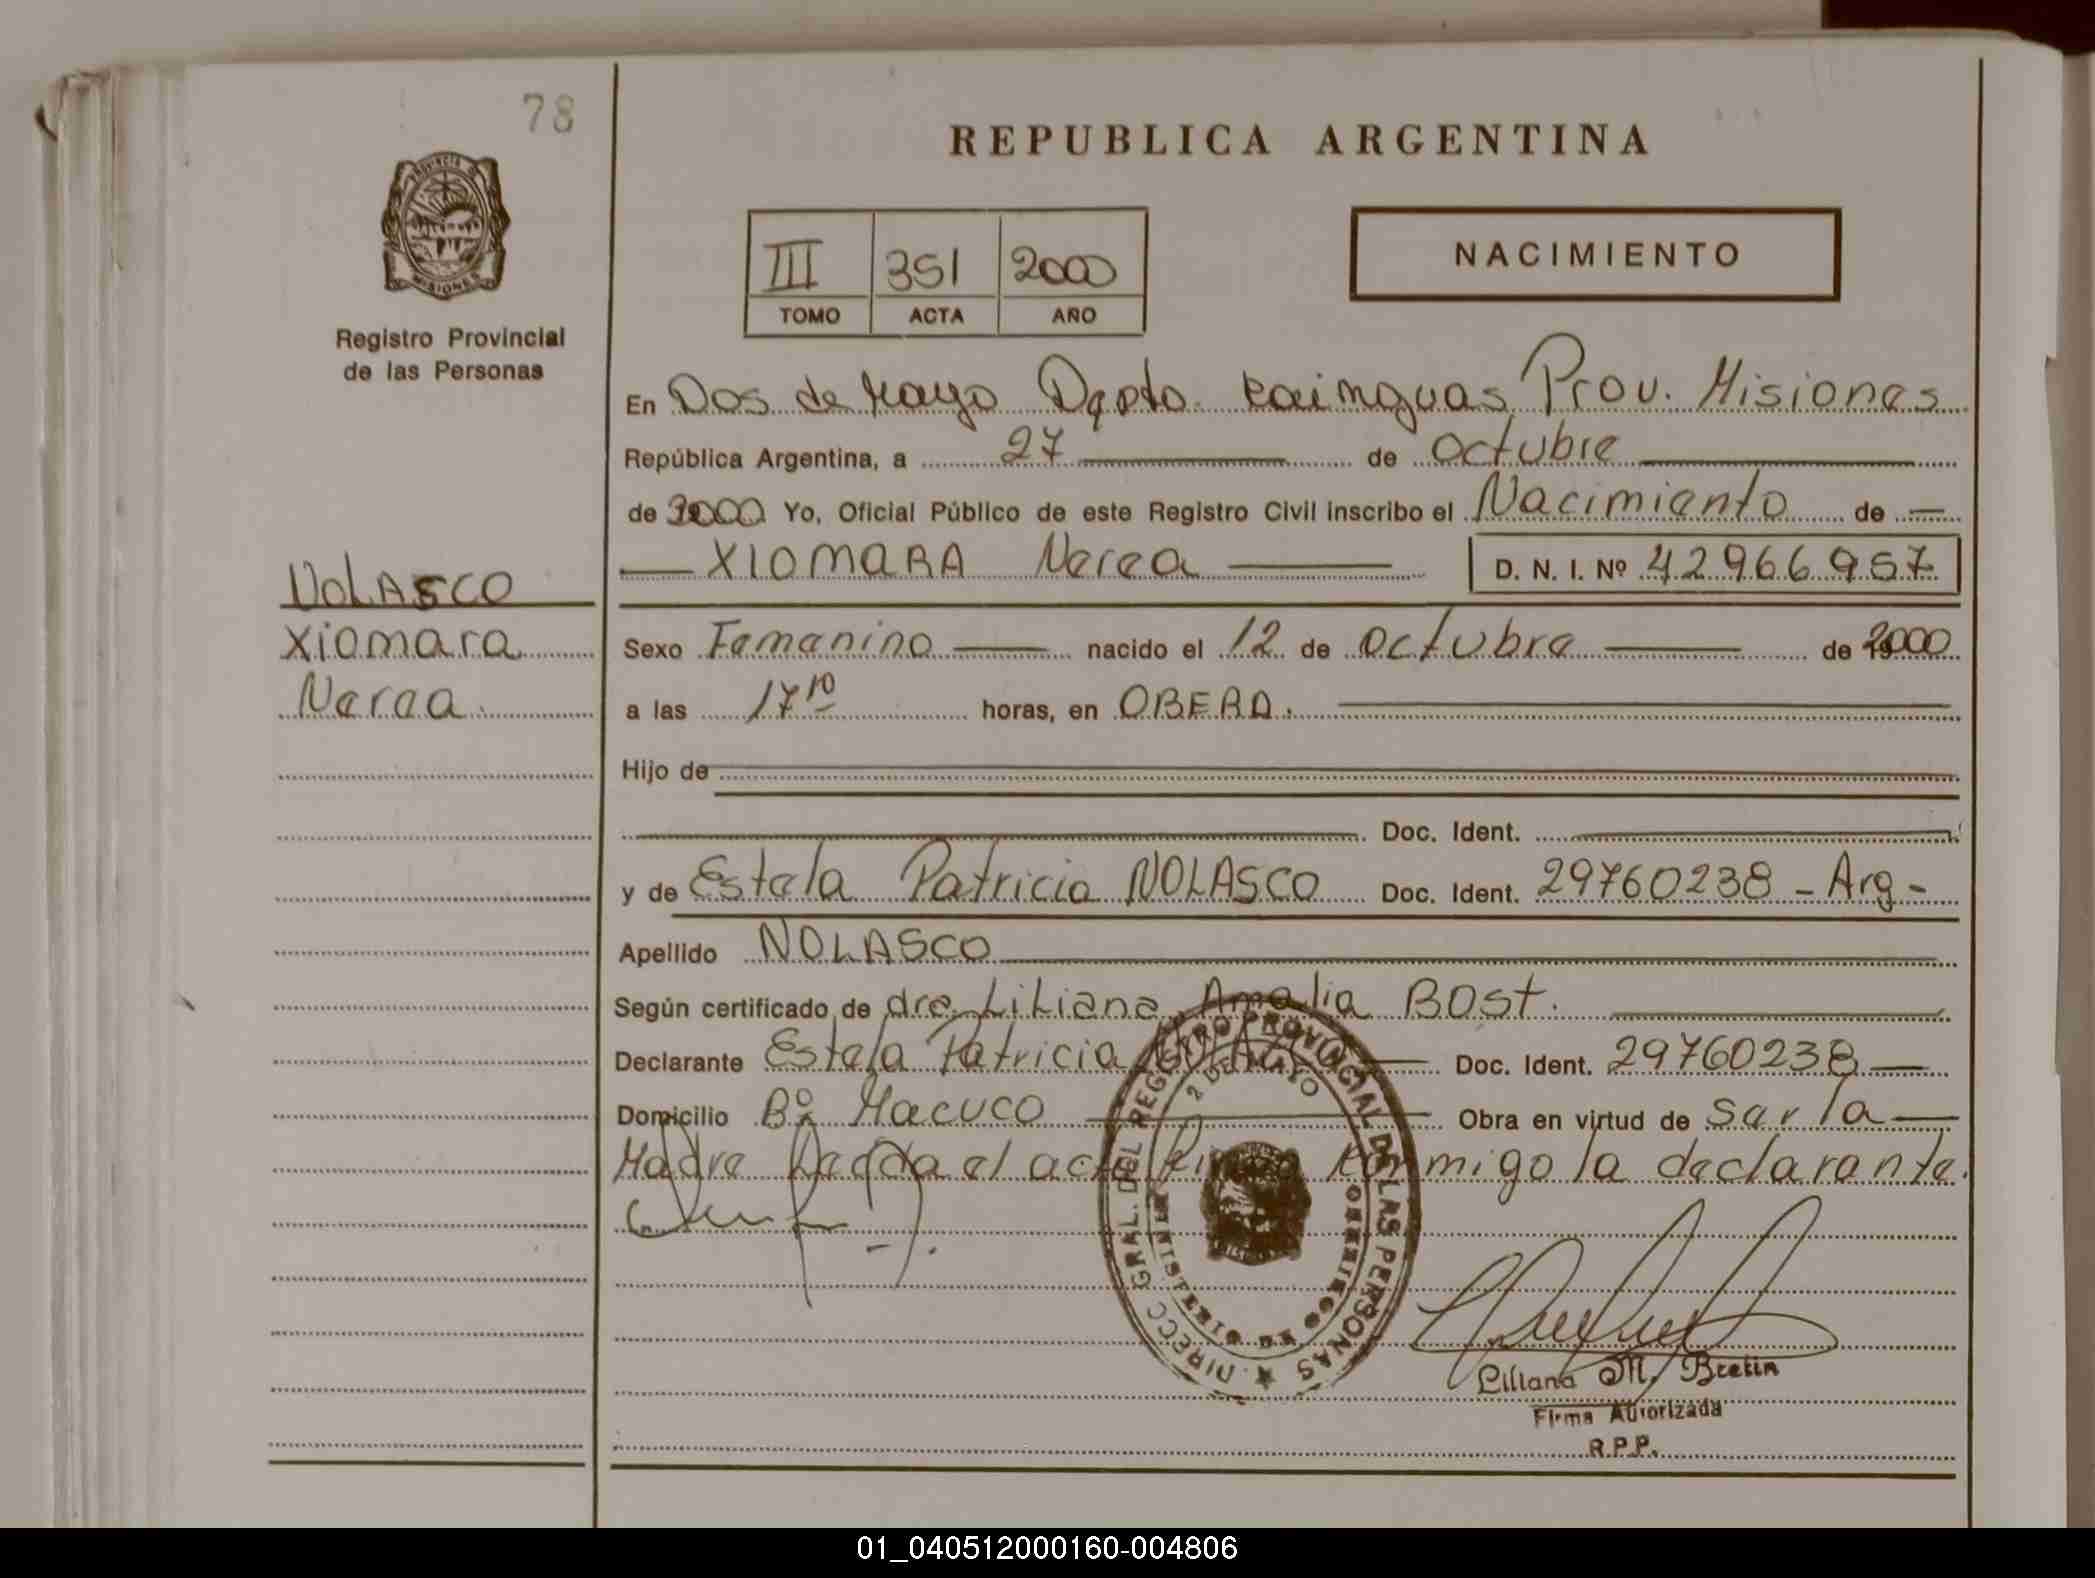 78
REPUBLICA ARGENTINA
PROVINCIA DE
MISIONES
Registro Provincial
de las Personas
III 351 2000
TOMO ACTA AÑO
NACIMIENTO
En Dos de Mayo Depto. Kainguas Prov. Misiones
República Argentina, a 27 de octubre
de 2000 Yo, Oficial Público de este Registro Civil inscribo el Nacimiento de
XIOMARA Nerea D. N. I. Nº 42966957
NOLASCO
Xiomara
Nerea
Sexo Femenino nacido el 12 de octubre de 2000
a las 17 10 horas, en OBERA.
Hijo de
Doc. Ident.
y de Estela Patricia NOLASCO Doc. Ident. 29760238 - Arg -
Apellido NOLASCO
Según certificado de dra. Liliana Amalia BOST.
Declarante Estela Patricia NOLASCO Doc. Ident. 29760238
Domicilio Bº Macuco Obra en virtud de ser la
Madre Leída el acta firma conmigo la declarante.
DIRECC GRAL. DEL REGISTRO PROVINCIAL DE LAS PERSONAS
2 DE MAYO
MINISTERIO DE GOBIERNO
Liliana M. Bretin
Firma Autorizada
R.P.P.
01_040512000160-004806